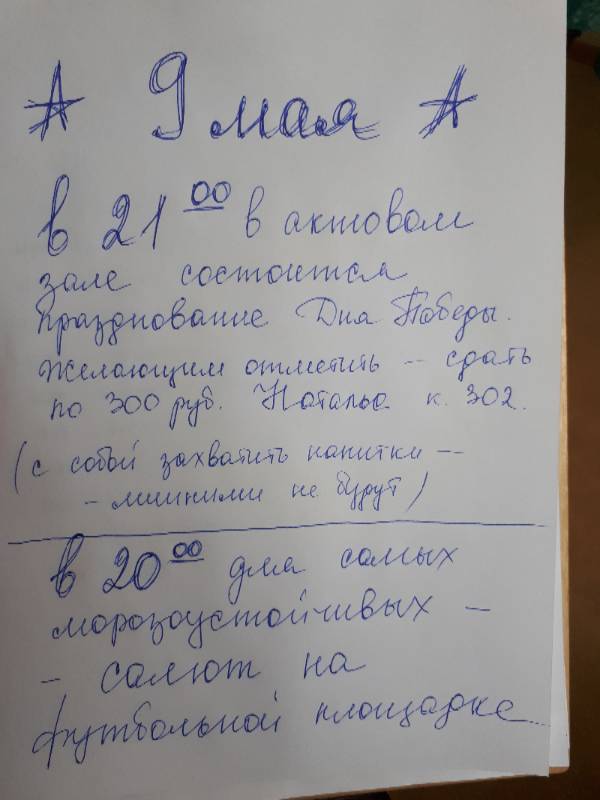 9 мая
в 21 00 в актовом
зале состоится
празднование Дня Победы.
Желающим отметить -- сдать
по 300 руб. Наталье к. 302.
(с собой захватить напитки --
- лишними не будут)
в 20 00 для самых
морозоустойчивых -
- салют на
футбольной площадке